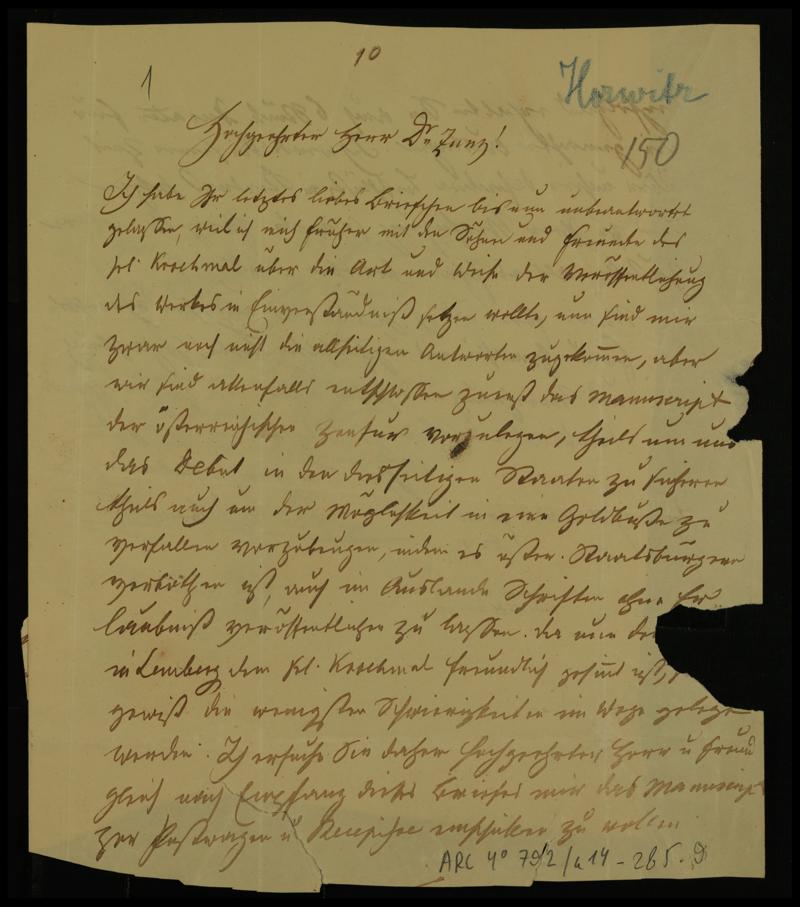 10
1
Horwitz
150
Hochgeehrter Herr Dr Zunz!
Ich habe Ihr letztes liebes Briefchen bis nun unbeantwortet
gelassen, weil ich mich früher mit den Söhnen und Freunde des
sel. Krochmal über die Art und Weise der Veröffentlichung
des Werkes in Einverständniß setzen wollte, nun sind mir
zwar noch nicht die allseitigen Antworten zugekommen, aber
wir sind allenfalls entschlossen zuerst das Manuscript
der österreichischen Zensur vorzulegen, theils um uns
das Debit in den diesseitigen Staaten zu sichern
theils auch um der Möglichkeit in eine Geldbuße zu
verfallen vorzubeugen, indem es öster. Staatsbürgern
verbothen ist, auch im Auslande Schriften ohne Er-
laubniß veröffentlichen zu lassen. da nun
in Lemberg dem sel. Krochmal freundlich gesinnt ist,
gewiß die wenigsten Schwierigkeiten im Wege gelegt
werden. Ich ersuche Sie daher hochgeehrter Herr u Freund
gleich nach Empfang dieses Briefes mir das Manuscript
per Postwagen u Recepisse einschicken zu wollen
ARC 4° 792/a14-265.9